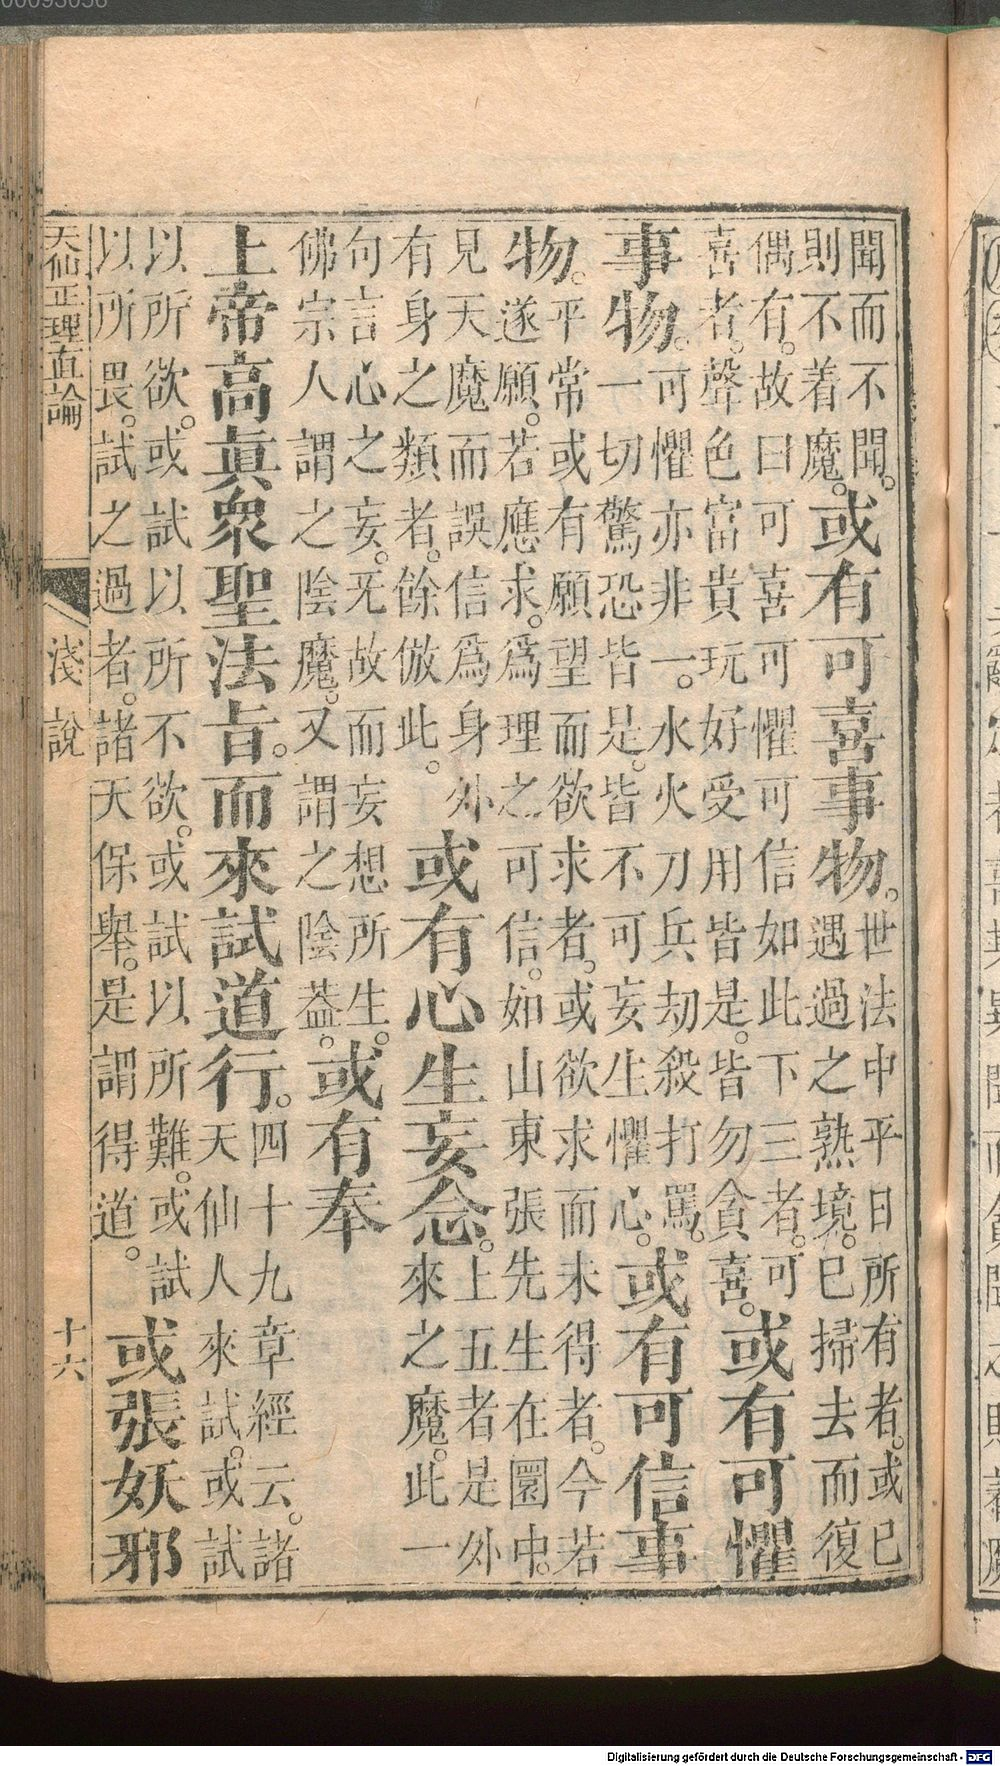 聞而不聞。
則不着魔。
或有可喜事物。
世法中平日所有者。或已
遇過之熟境。已掃去而復
偶有。故曰可喜可懼可信如此下三者。可
喜者。聲色富貴玩好受用皆是。皆勿貪喜。
或有可懼
事物。
可懼亦非一。水火刀兵劫殺打罵。
一切驚恐皆是。皆不可妄生懼心。
或有可信事
物。
平常或有願望而欲求者。或欲求而未得者。今若
遂願。若應求。爲理之可信。如山東張先生在圜中。
見天魔而誤信爲身外
有身之類者。餘倣此。
或有心生妄念。
上五者是外
來之魔。此一
句言心之妄。旡故而妄想所生。
佛宗人謂之陰魔。又謂之陰葢。
或有奉
上帝高眞衆聖法旨。而來試道行。
四十九章經云。諸
天仙人來試。或試
以所欲。或試以所不欲。或試以所難。或試
以所畏。試之過者。諸天保舉。是謂得道。
或張妖邪
天仙正理直論 淺說 十六
Digitalisierung gefördert durch die Deutsche Forschungsgemeinschaft - DFG